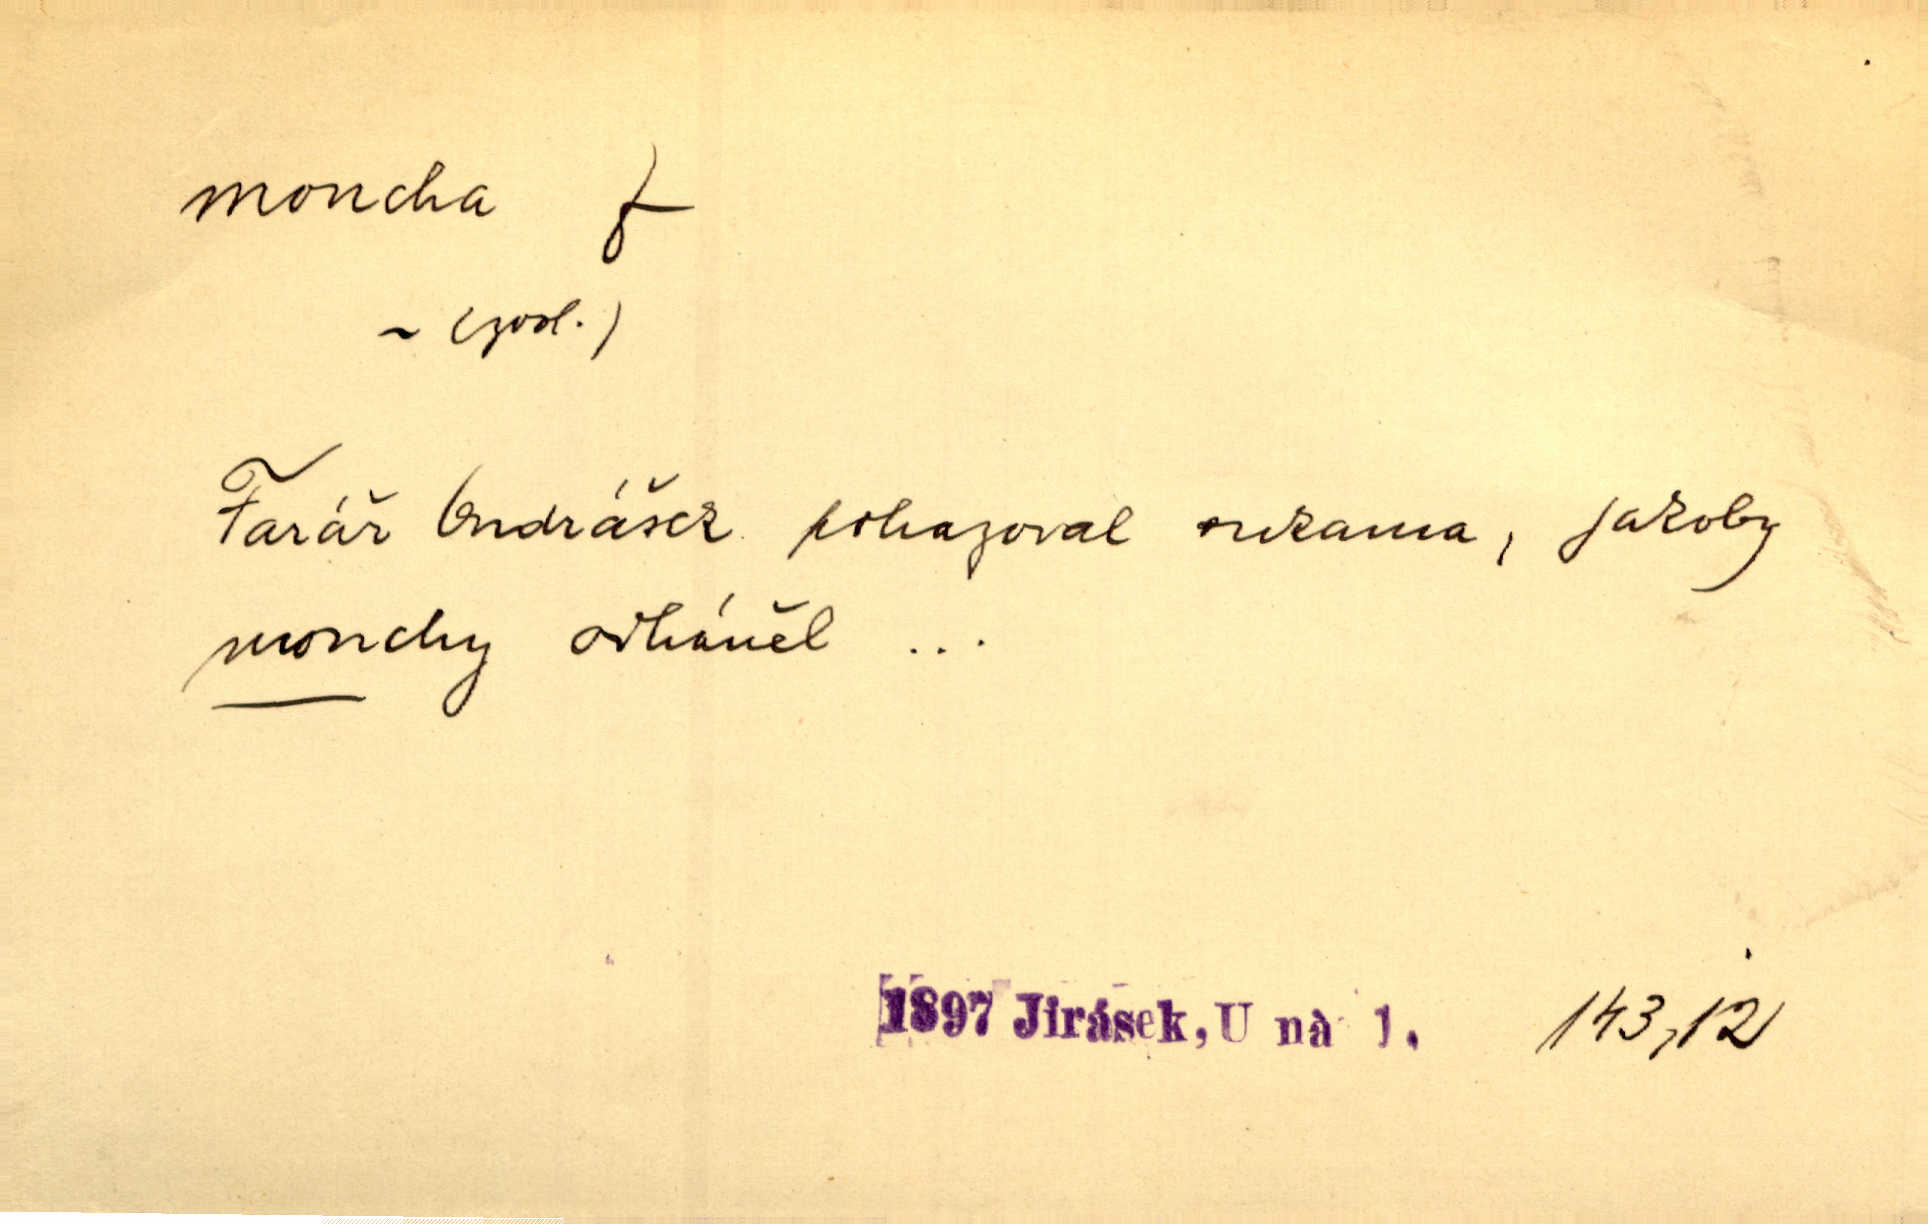 moucha f
~ (zool.)
Farář Ondrášek pohazoval rukama, jakoby
mouchy odháněl ...
1897 Jirásek, U nà 1. 143,12